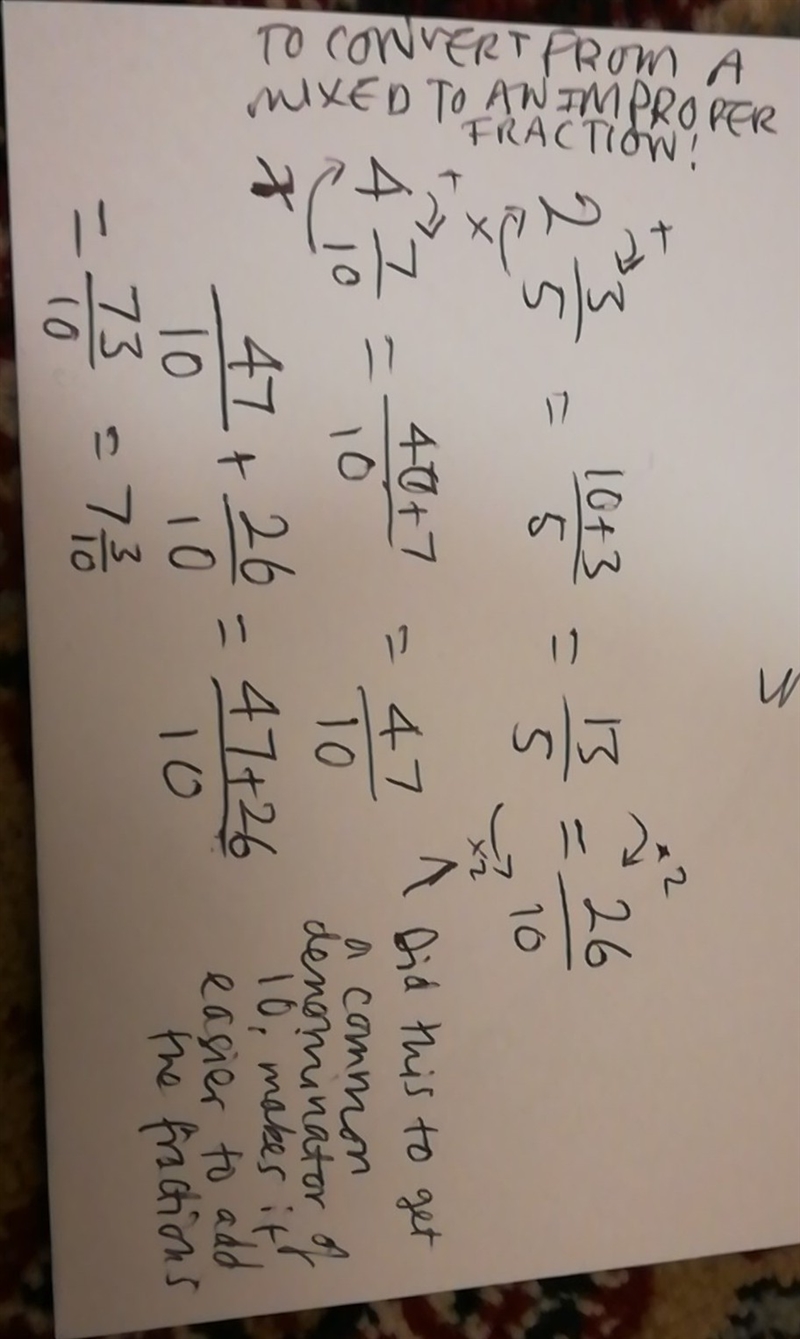 TO CONVERT FROM A
MIXED TO AN IMPROPER
FRACTION!
2 3/5 = 10+3/5 = 13/5 = 26/10
+
x
×2
×2
4 7/10 = 40+7/10 = 47/10
+
x
47/10 + 26/10 = 47+26/10
= 73/10 = 7 3/10
^ Did this to get
a common
denominator of
10, makes it
easier to add
the fractions